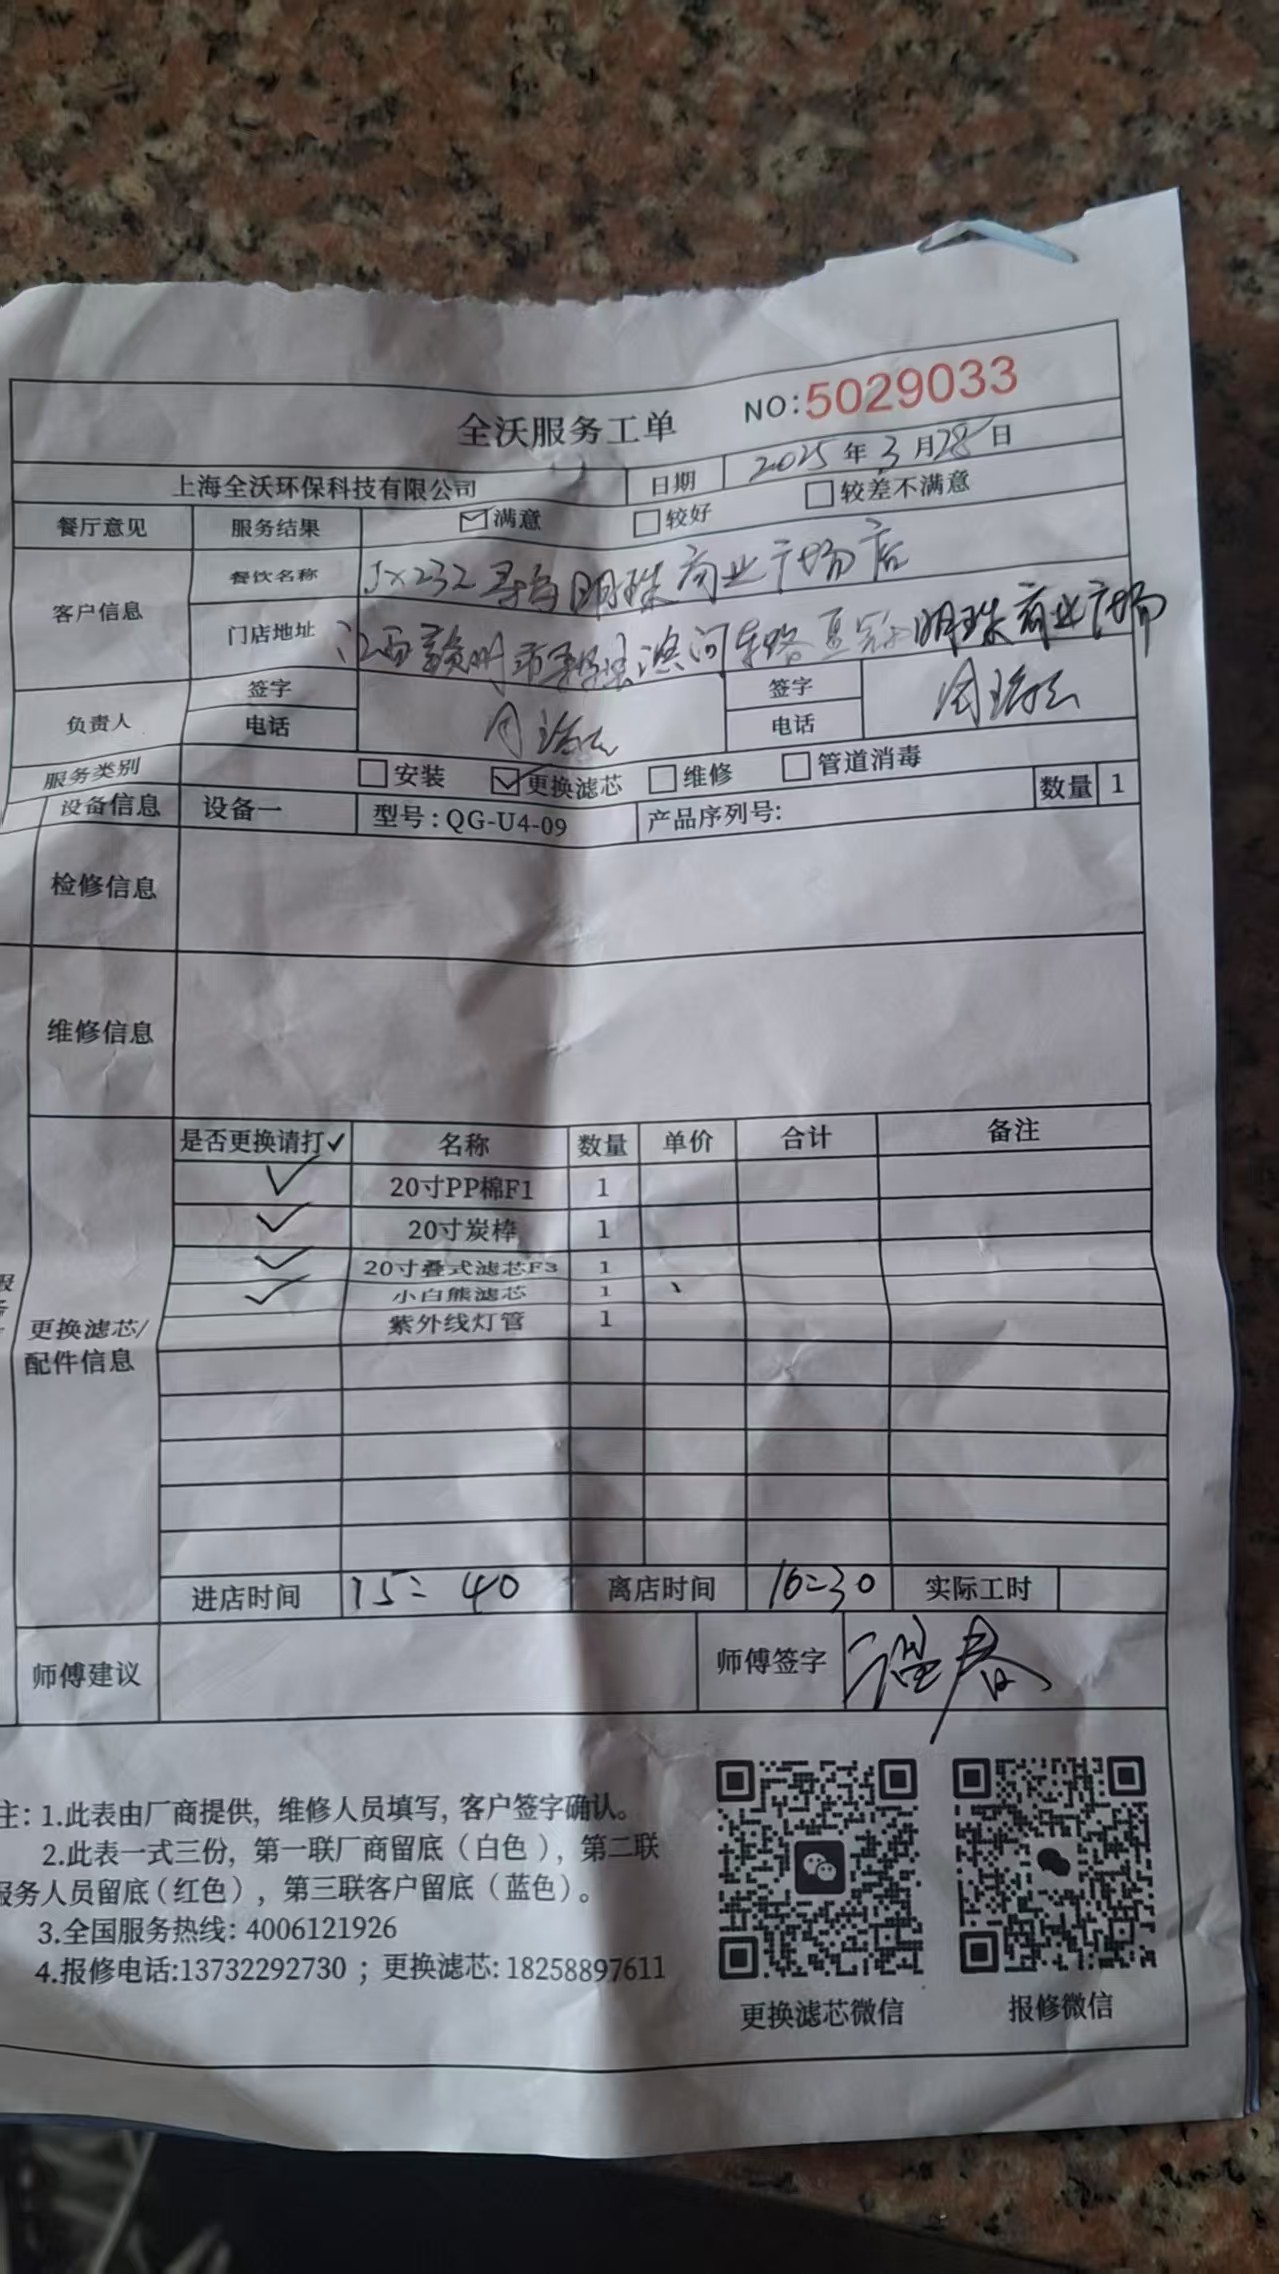 全沃服务工单 NO:5029033
上海全沃环保科技有限公司 日期 2025年3月28日
餐厅意见 服务结果 满意 较好 较差不满意
客户信息 餐饮名称 JX232寻乌明珠商业广场店
门店地址 江西赣州市寻乌县滨河东路 明珠商业广场
负责人 签字 签字
电话 电话
服务类别 安装 更换滤芯 维修 管道消毒
设备信息 设备一 型号:QG-U4-09 产品序列号: 数量 1
检修信息
维修信息
更换滤芯/
配件信息
是否更换请打✓ 名称 数量 单价 合计 备注
✓ 20寸PP棉F1 1
✓ 20寸炭棒 1
✓ 20寸叠式滤芯F3 1
✓ 小白熊滤芯 1
紫外线灯管 1
进店时间 15:40 离店时间 16:30 实际工时
师傅建议 师傅签字 温春
注: 1.此表由厂商提供, 维修人员填写, 客户签字确认。
2.此表一式三份, 第一联厂商留底(白色), 第二联
服务人员留底(红色), 第三联客户留底(蓝色)。
3.全国服务热线: 4006121926
4.报修电话:13732292730 ; 更换滤芯: 18258897611
更换滤芯微信 报修微信